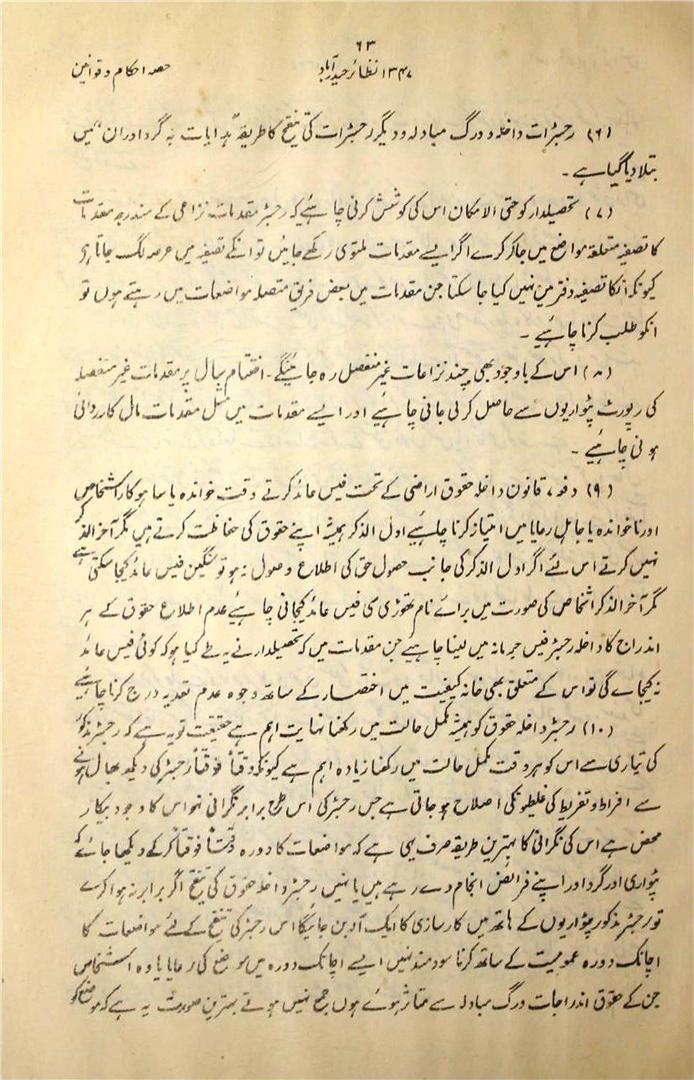 ۶۳
۱۳۴۷ نظائر حیدرآباد
حصہ احکام و قوانین
(۶) رجسٹرات داخلہ و ورگ مبادلہ و دیگر رجسٹرات کی تنقیح کا طریقہ ہدایات بہ گرداوران میں
بتلا دیا گیا ہے۔
(۷) تحصیلدار کو حتی الامکان اس کی کوشش کرنی چاہئیے کہ رجسٹر مقدمات نزاعی کے مندرجہ مقدمات
کا تصفیہ متعلقہ مواضع میں جا کر کرے اگر ایسے مقدمات ملتوی رکھے جائیں تو انکے تصفیہ میں عرصہ لگ جاتا ہی
کیونکہ انکا تصفیہ دفتر میں نہیں کیا جا سکتا جن مقدمات میں بعض فریق متصلہ مواضعات میں رہتے ہوں تو
انکو طلب کرنا چاہئیے۔
(۸) اس کے باوجود بھی چند نزاعات غیر منفصل رہ جائینگے۔ اختتام سال پر مقدمات غیر منفصلہ
کی رپورٹ پٹواریوں سے حاصل کر لی جانی چاہئیے اور ایسے مقدمات میں مثل مقدمات مال کارروائی
ہونی چاہئیے۔
(۹) دفعہ ۷ قانون داخلہ حقوق اراضی کے تحت فیس عائد کرتے وقت خواندہ یا ساہوکار اشخاص
اور ناخواندہ یا جاہل رعایا میں امتیاز کرنا چاہئیے اول الذکر ہمیشہ اپنے حقوق کی حفاظت کرتے ہیں مگر آخر الذکر
نہیں کرتے اس لئے اگر اول الذکر کی جانب حصول حق کی اطلاع وصول نہ ہو تو سنگین فیس عائد کیجا سکتی ہے
مگر آخر الذکر اشخاص کی صورت میں برائے نام تھوڑی سی فیس عائد کیجانی چاہئیے عدم اطلاع حقوق کے ہر
اندراج کا داخلہ رجسٹر فیس جرمانہ میں لینا چاہئیے جن مقدمات میں کہ تحصیلدار نے یہ طے کیا ہو کہ کوئی فیس عائد
نہ کیجاے گی تو اس کے متعلق بھی خانہ کیفیت میں اختصار کے ساتھ وجوہ عدم تعدیہ درج کرنا چاہئیے
(۱۰) رجسٹر داخلہ حقوق کو ہمیشہ مکمل حالت میں رکھنا نہایت اہم ہے حقیقت تو یہ ہے کہ رجسٹر مذکور
کی تیاری سے اس کو ہر وقت مکمل حالت میں رکھنا زیادہ اہم ہے کیونکہ وقتاً فوقتاً رجسٹر کی دیکھ بھال ہونے
سے افراط و تفریط کی غلطیونکی اصلاح ہو جاتی ہے جس رجسٹر کی اس طرح برابر نگرانی نہو اس کا وجود بیکار
محض ہے اس کی نگرانی کا بہترین طریقہ صرف یہی ہے کہ مواضعات کا دورہ وقتاً فوقتاً کر کے دیکھا جائے کہ
پٹواری اور گرداور اپنے فرائض انجام دے رہے ہیں یا نہیں رجسٹر داخلہ حقوق کی تنقیح اگر برابر نہ ہوا کرے
تو رجسٹر مذکور پٹواریوں کے ہاتھ میں کارسازی کا ایک آلہ بن جائیگا اس رجسٹر کی تنقیح کے لئے مواضعات کا
اچانک دورہ عمومیت کے ساتھ کرنا سودمند نہیں ایسے اچانک دورہ میں موضع کی رعایا یا وہ اشخاص
جن کے حقوق اندراجات ورگ مبادلہ سے متاثر ہوئے ہوں جمع نہیں ہوتے بہترین صورت یہ ہے کہ موضع کو